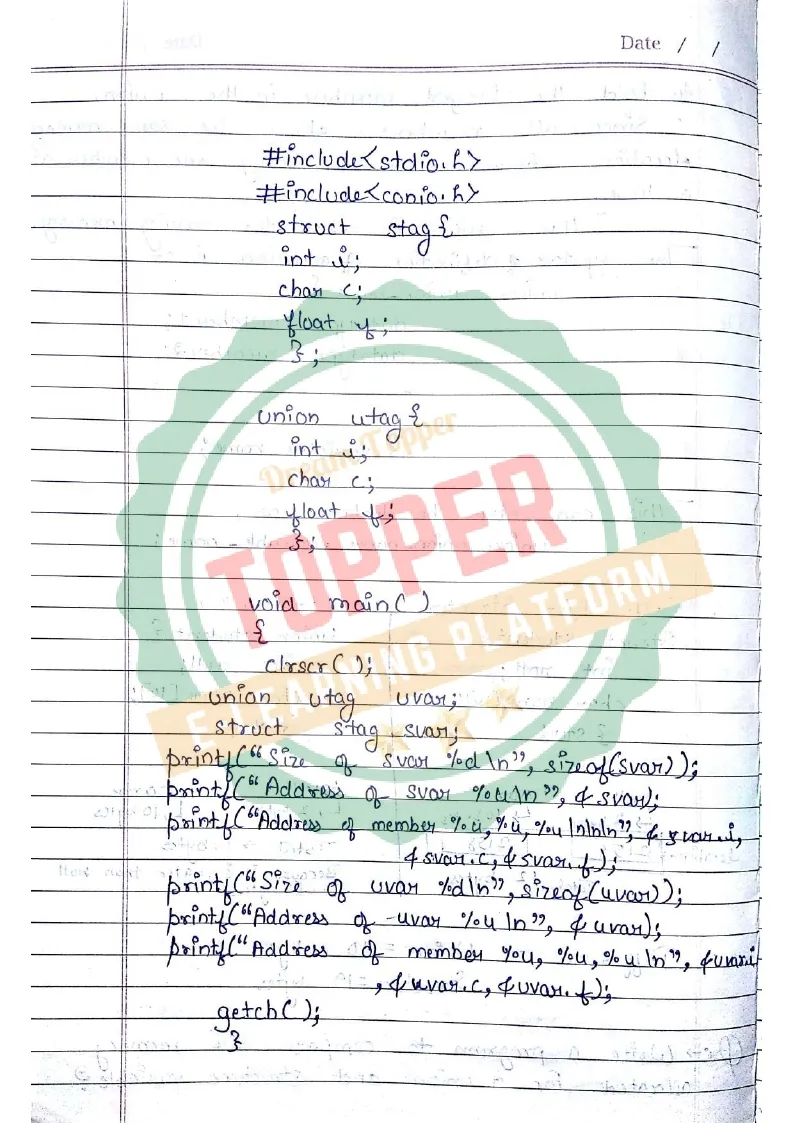 Date / /
#include<stdio.h>
#include<conio.h>
struct stag{
int i;
char c;
float f;
};
union utag{
int i;
char c;
float f;
};
void main()
{
clrscr();
union utag uvar;
struct stag svar;
printf("Size of svar %d \n", sizeof(svar));
printf("Address of svar %u\n", &svar);
printf("Address of member %u, %u, %u \n\n\n", &svar.i,
&svar.c, &svar.f);
printf("Size of uvar %d\n", sizeof(uvar));
printf("Address of -uvar %u \n", &uvar);
printf("Address of member %u, %u, %u \n", &uvar.i
, &uvar.c, &uvar.f);
getch();
}
DreamTopper
TOPPER
E LEARNING PLATFORM